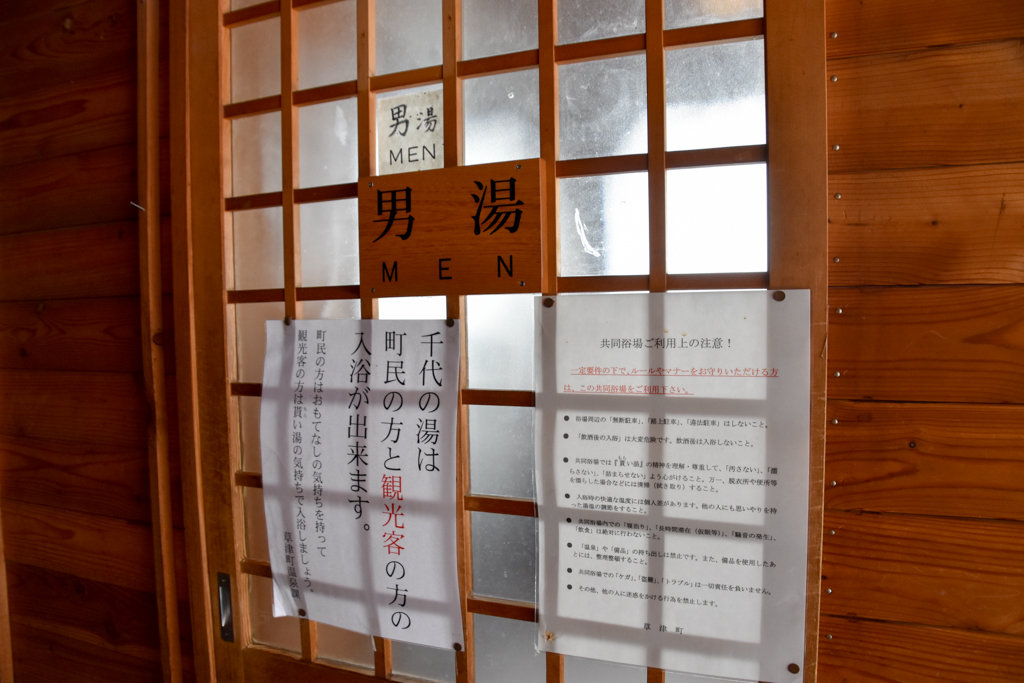 男湯
MEN
男湯
MEN
千代の湯は
町民の方と観光客の方の
入浴が出来ます。
町民の方はおもてなしの気持ちを持って
観光客の方は貰い湯の気持ちで入浴しましょう。
草津町温泉課
共同浴場ご利用上の注意！
一定要件の下で、ルールやマナーをお守りいただける方
は、この共同浴場をご利用下さい。
● 浴場周辺の「無断駐車」、「路上駐車」、「違法駐車」はしないこと。
● 「飲酒後の入浴」は大変危険です。飲酒後は入浴しないこと。
● 共同浴場では『貰い湯』の精神を理解・尊重して、「汚さない」、「濡
らさない」、「詰まらせない」よう心がけること。万一、脱衣所や便所等
を濡らした場合などには清掃（拭き取り）すること。
● 入浴時の快適な温度には個人差があります。他の人にも思いやりを持
った湯温の調節をすること。
● 共同浴場内での「寝泊り」、「長時間滞在（仮眠等）」、「騒音の発生」、
「飲食」は絶対に行わないこと。
● 「温泉」や「備品」の持ち出しは禁止です。また、備品を使用したあ
とには、整理整頓すること。
● 共同浴場での「ケガ」、「盗難」、「トラブル」は一切責任を負いません。
● その他、他の人に迷惑をかける行為を禁止します。
草津町